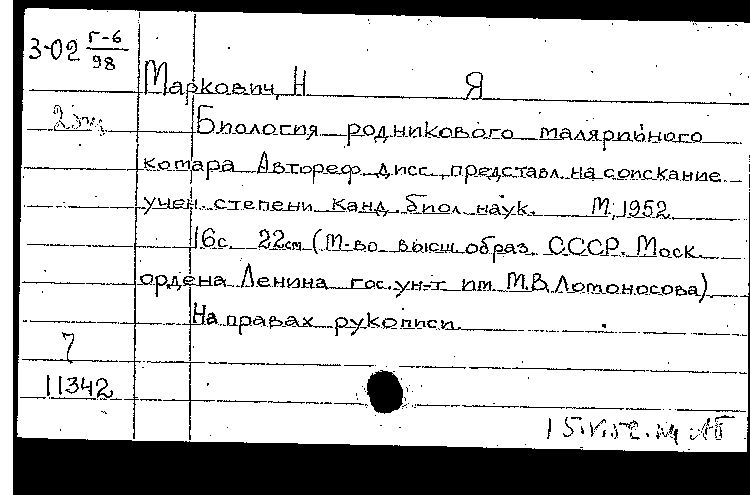 3-02 Г-6/98
Маркович, Н Я
2 экз
Биология родникового малярийного
комара Автореф. дисс., представл. на соискание
учен. степени канд. биол. наук. М., 1952.
16с. 22см (М-во высш. образ. СССР. Моск.
ордена Ленина гос. ун-т им. М.В. Ломоносова)
На правах рукописи.
7
11342
15.V.52.